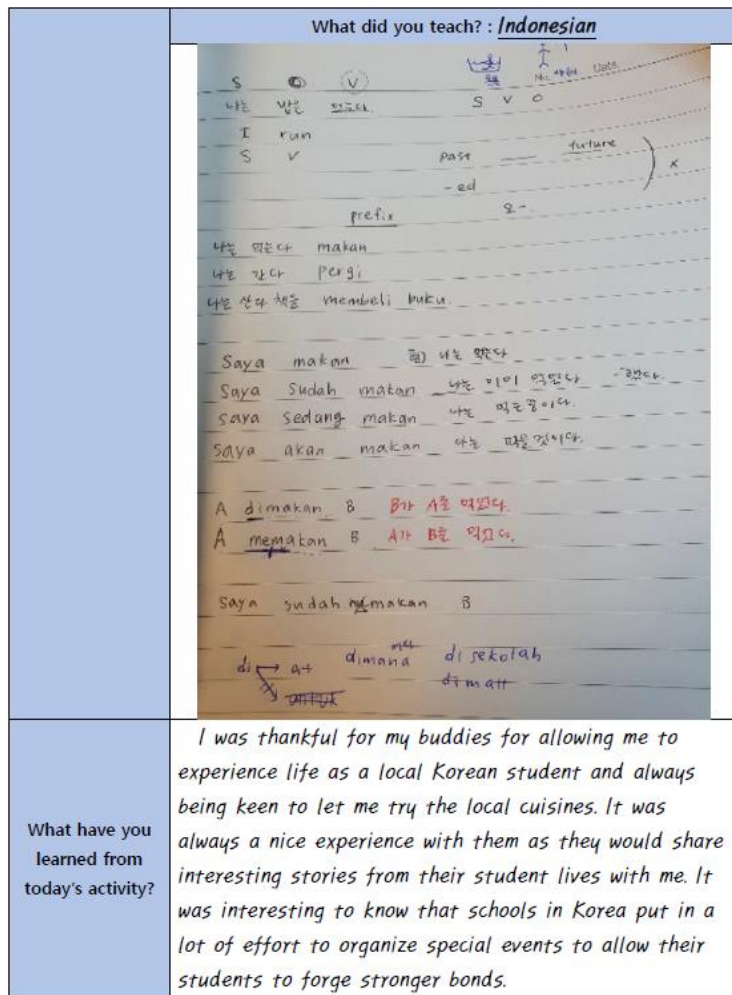 What did you teach? : Indonesian
S O V
나는 밥을 먹는다.
S V O
I run
S V
past future
-ed
x
prefix
나는 먹는다 makan
나는 간다 pergi
나는 산다 책을 membeli buku.
Saya makan 나는 먹는다
Saya sudah makan 나는 이미 먹었다 ~했다.
saya sedang makan 나는 먹는중이다.
saya akan makan 나는 먹을것이다.
A dimakan B B가 A를 먹었다.
A memakan B A가 B를 먹었다.
Saya sudah memakan B
di → at dimana di sekolah
untuk
What have you
learned from
today's activity?
I was thankful for my buddies for allowing me to
experience life as a local Korean student and always
being keen to let me try the local cuisines. It was
always a nice experience with them as they would share
interesting stories from their student lives with me. It
was interesting to know that schools in Korea put in a
lot of effort to organize special events to allow their
students to forge stronger bonds.